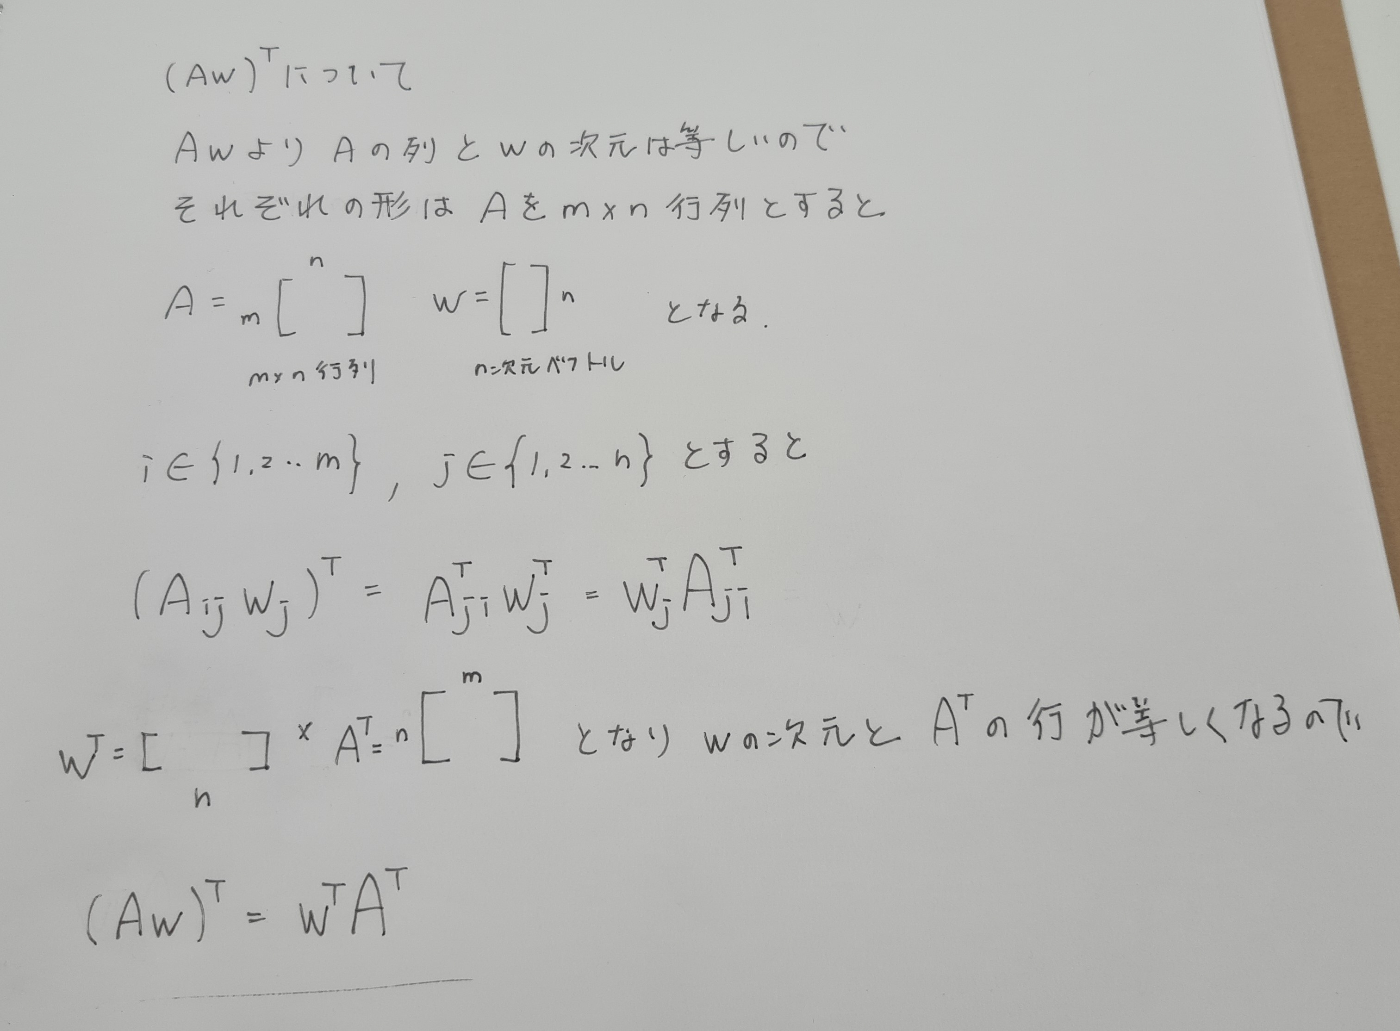 (Aw)ᵀ について
Aw より A の 列 と w の 次元は等しいので
それぞれの形は A を m×n 行列とすると
A = m [ ] n w = [ ] n となる.
m×n 行列 n次元ベクトル
i ∈ {1, 2 ‥ m} , j ∈ {1, 2 … n} とすると
(Aᵢⱼ wⱼ)ᵀ = Aᵀⱼᵢ wᵀⱼ = wᵀⱼ Aᵀⱼᵢ
wᵀ = [ ] n × Aᵀ = n [ ] m となり wの次元と Aᵀ の 行 が等しくなるので
(Aw)ᵀ = wᵀAᵀ